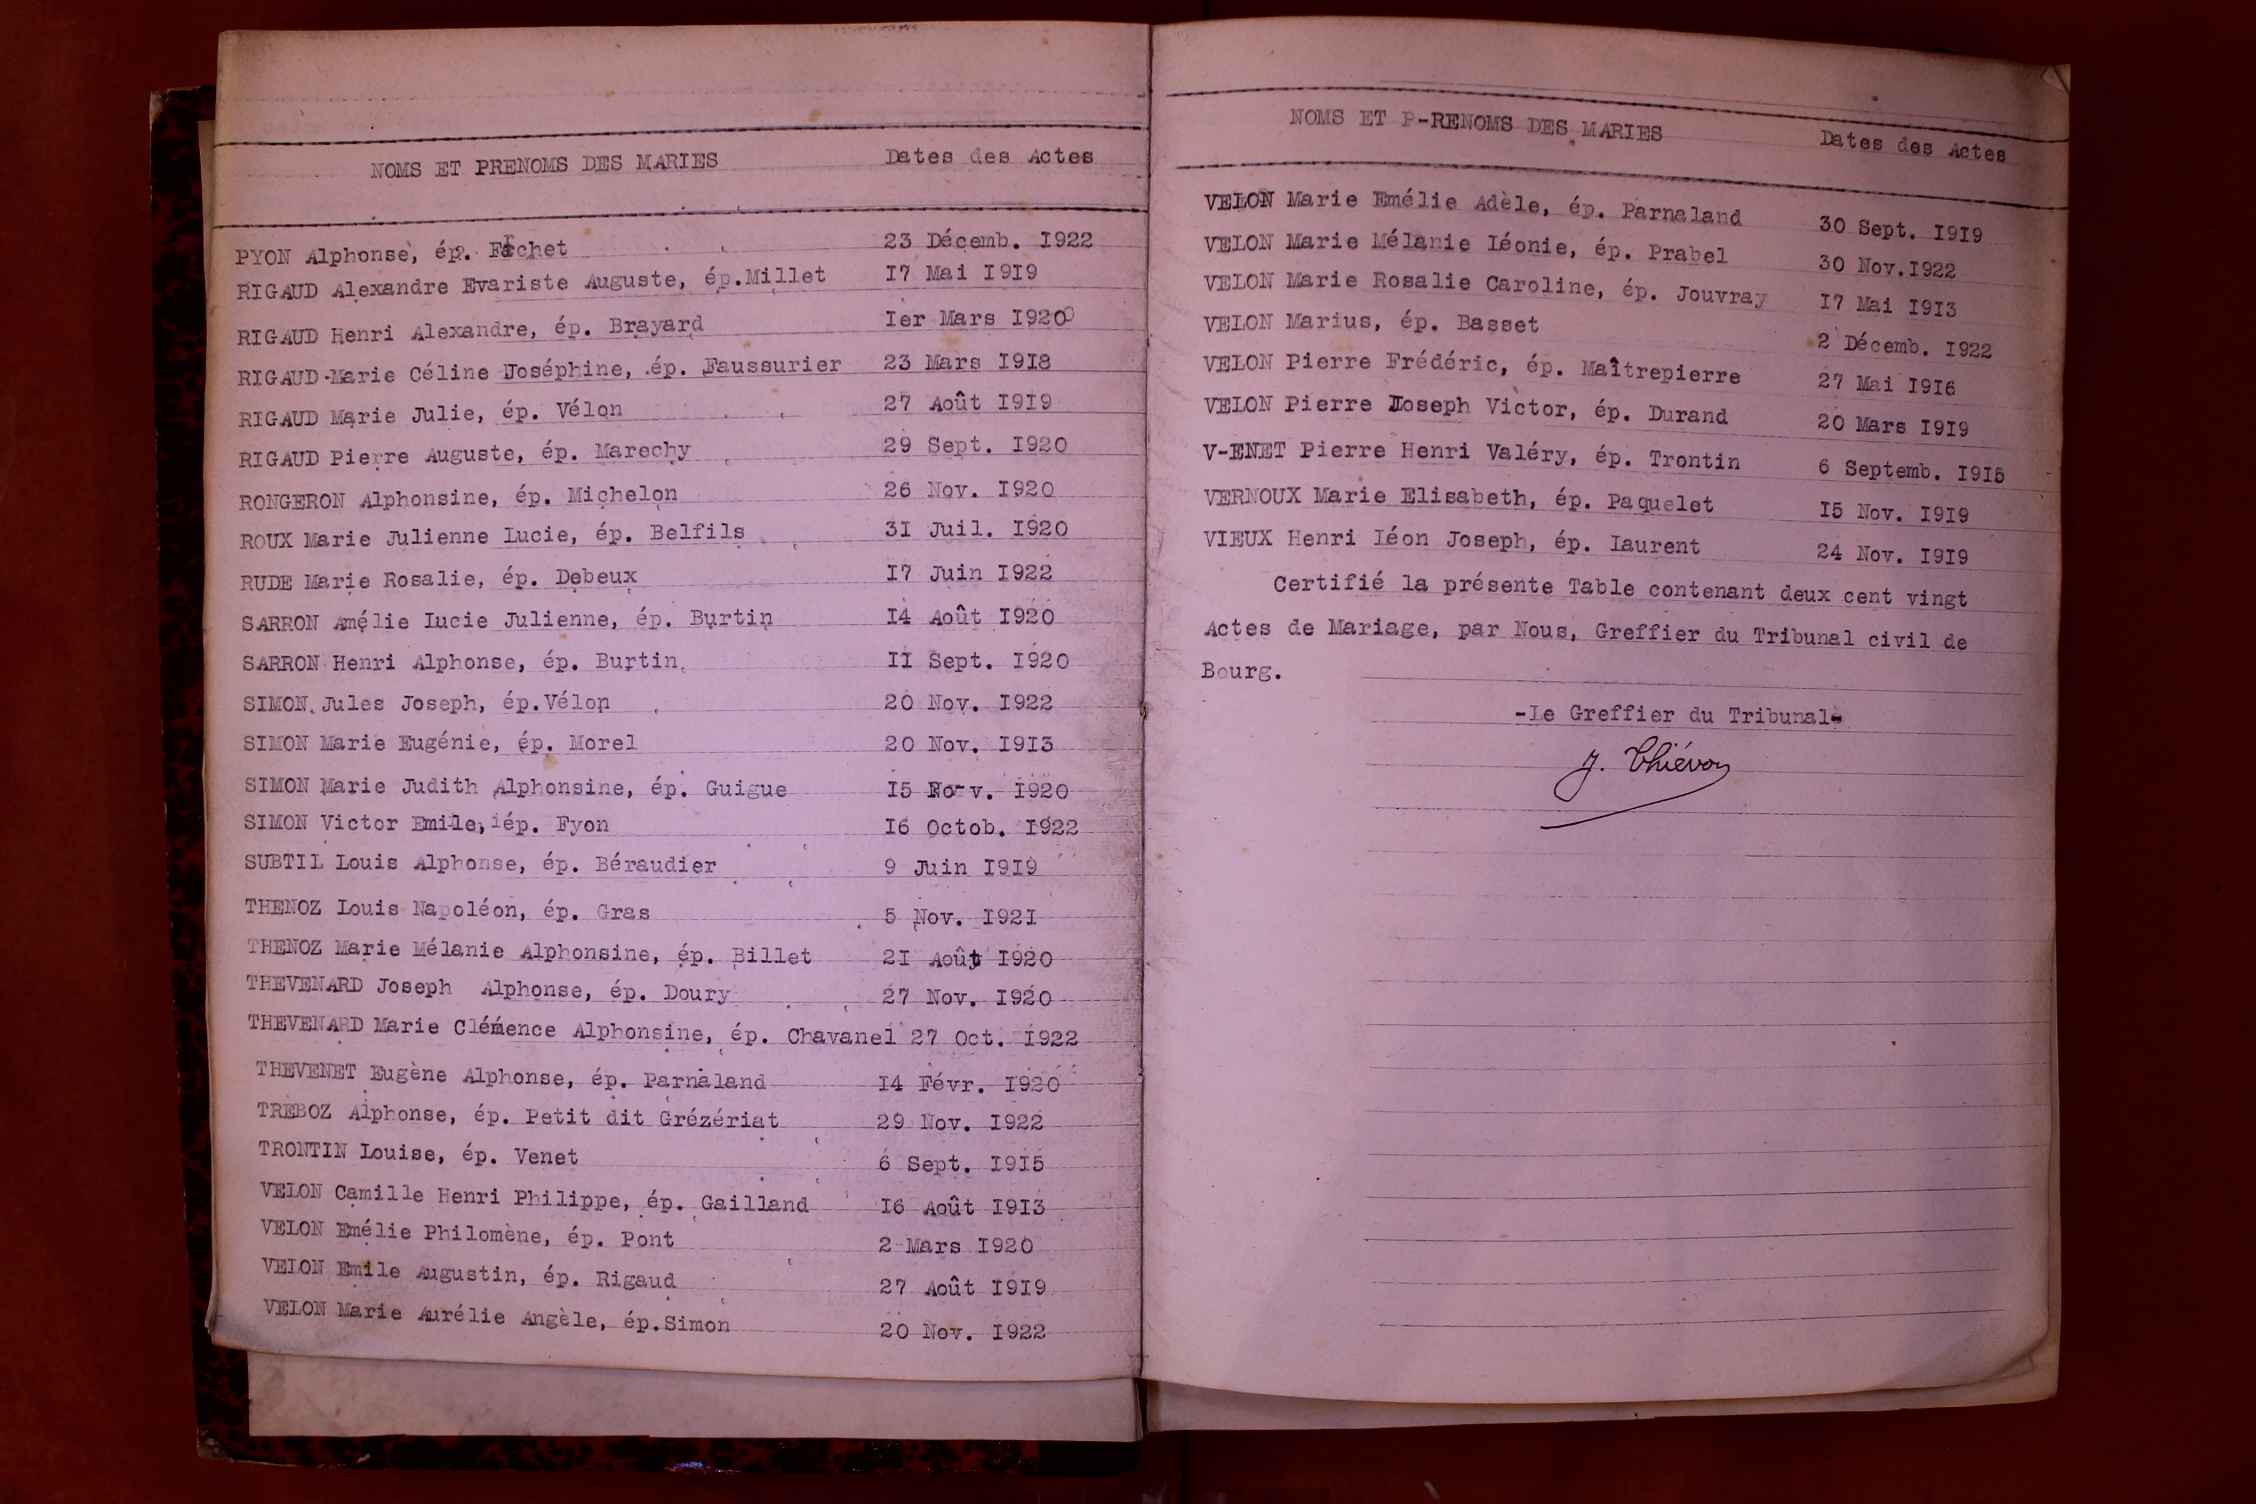 NOMS ET PRENOMS DES MARIES Dates des Actes
PYON Alphonse, ép. Fochet 23 Décemb. I922
RIGAUD Alexandre Evariste Auguste, ép.Millet I7 Mai I9I9
RIGAUD Henri Alexandre, ép. Brayard Ier Mars I920
RIGAUD Marie Céline Joséphine, ép. Faussurier 23 Mars I9I8
RIGAUD Marie Julie, ép. Vélon 27 Août I9I9
RIGAUD Pierre Auguste, ép. Marechy 29 Sept. I920
RONGERON Alphonsine, ép. Michelon 26 Nov. I920
ROUX Marie Julienne Lucie, ép. Belfils 3I Juil. I920
RUDE Marie Rosalie, ép. Debeux I7 Juin I922
SARRON Amélie Lucie Julienne, ép. Burtin I4 Août I920
SARRON Henri Alphonse, ép. Burtin II Sept. I920
SIMON Jules Joseph, ép.Vélon 20 Nov. I922
SIMON Marie Eugénie, ép. Morel 20 Nov. I9I3
SIMON Marie Judith Alphonsine, ép. Guigue I5 Nov. I920
SIMON Victor Emile, ép. Fyon I6 Octob. I922
SUBTIL Louis Alphonse, ép. Béraudier 9 Juin I9I9
THENOZ Louis Napoléon, ép. Gras 5 Nov. I92I
THENOZ Marie Mélanie Alphonsine, ép. Billet 2I Août I920
THEVENARD Joseph Alphonse, ép. Doury 27 Nov. I920
THEVENARD Marie Clémence Alphonsine, ép. Chavanel 27 Oct. I922
THEVENET Eugène Alphonse, ép. Parnaland I4 Févr. I920
TREBOZ Alphonse, ép. Petit dit Grézériat 29 Nov. I922
TRONTIN Louise, ép. Venet 6 Sept. I9I5
VELON Camille Henri Philippe, ép. Gailland I6 Août I9I3
VELON Emélie Philomène, ép. Pont 2 Mars I920
VELON Emile Augustin, ép. Rigaud 27 Août I9I9
VELON Marie Aurélie Angèle, ép.Simon 20 Nov. I922
NOMS ET P-RENOMS DES MARIES Dates des Actes
VELON Marie Emélie Adèle, ép. Parnaland 30 Sept. I9I9
VELON Marie Mélanie Léonie, ép. Prabel 30 Nov.I922
VELON Marie Rosalie Caroline, ép. Jouvray I7 Mai I9I3
VELON Marius, ép. Basset 2 Décemb. I922
VELON Pierre Frédéric, ép. Maîtrepierre 27 Mai I9I6
VELON Pierre Joseph Victor, ép. Durand 20 Mars I9I9
V-ENET Pierre Henri Valéry, ép. Trontin 6 Septemb. I9I5
VERNOUX Marie Elisabeth, ép. Paquelet I5 Nov. I9I9
VIEUX Henri Léon Joseph, ép. Laurent 24 Nov. I9I9
Certifié la présente Table contenant deux cent vingt
Actes de Mariage, par Nous, Greffier du Tribunal civil de
Bourg.
-Le Greffier du Tribunal-
J. Thiévon